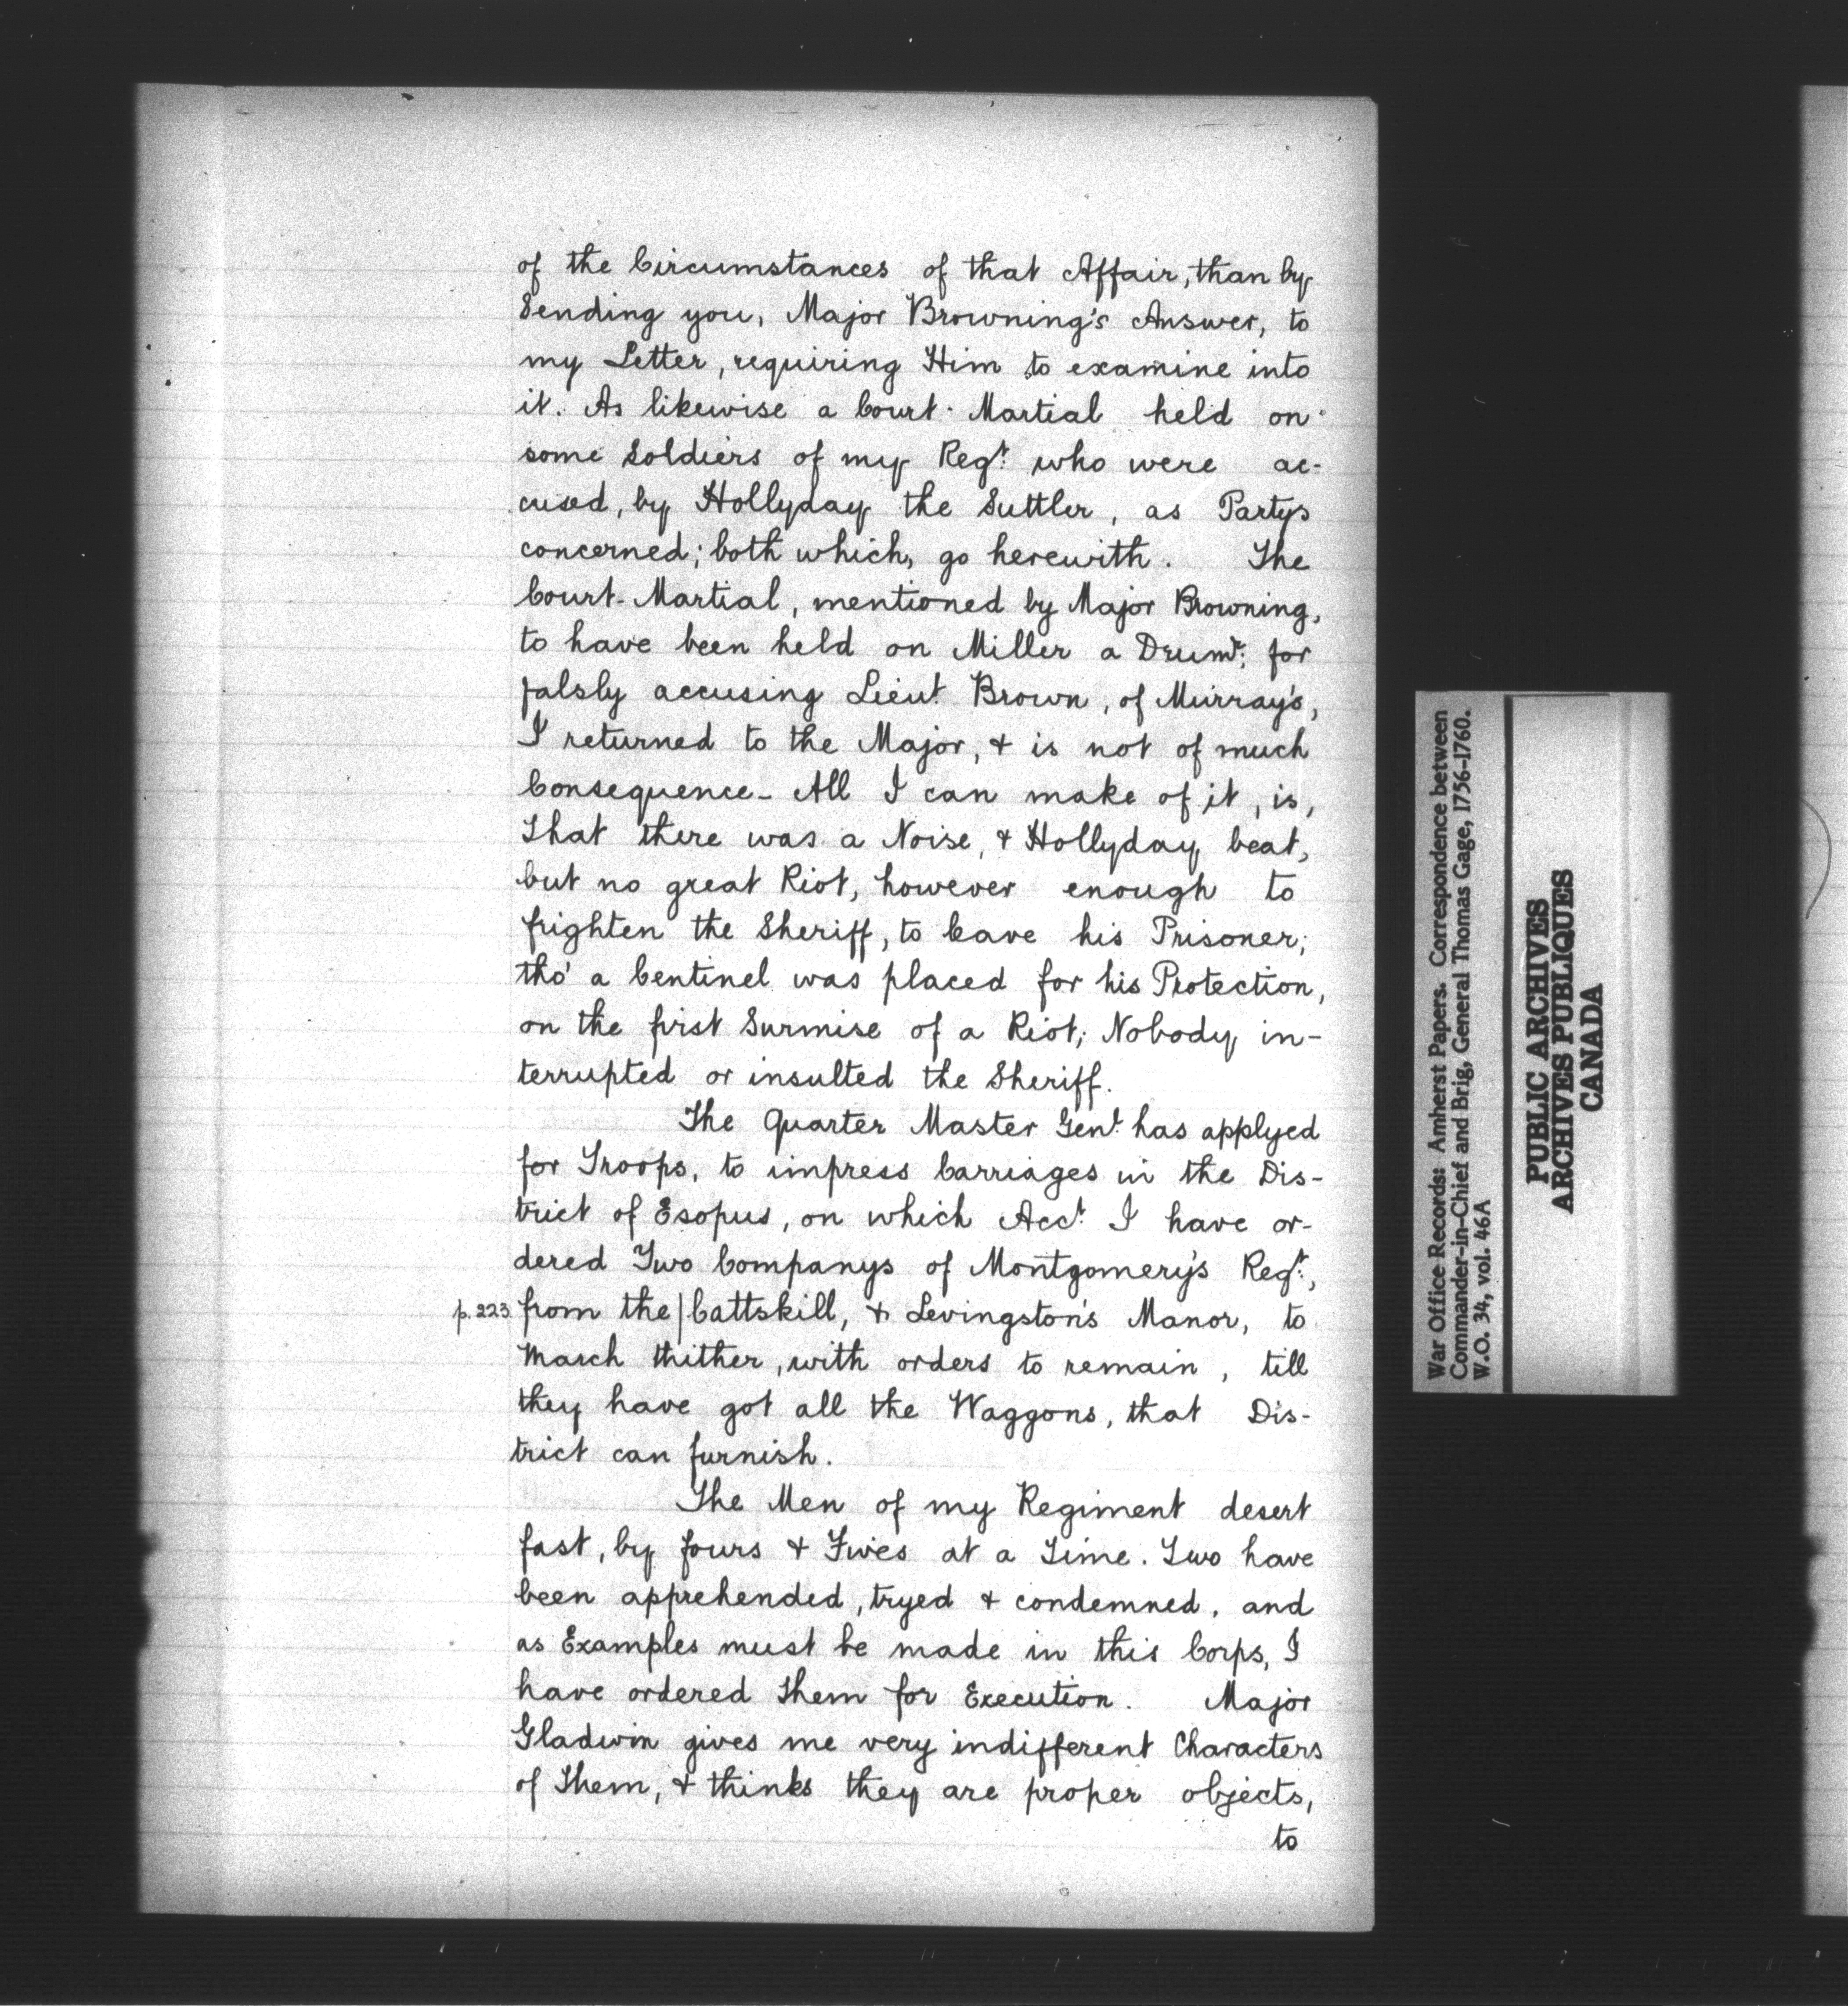 of the Circumstances of that Affair, than by
Sending you, Major Browning's Answer, to
my Letter, requiring Him to examine into
it. As likewise a Court-Martial held on
some Soldiers of my Regt. who were ac-
cused, by Hollyday the Suttler, as Partys
concerned; both which, go herewith. The
Court-Martial, mentioned by Major Browning,
to have been held on Miller a Drumr. for
falsly accusing Lieut. Brown, of Murray's,
I returned to the Major, & is not of much
Consequence - All I can make of it, is,
that there was a Noise, & Hollyday beat,
but no great Riot, however enough to
frighten the Sheriff, to leave his Prisoner;
tho' a Centinel was placed for his Protection,
on the first Surmise of a Riot; Nobody in-
terrupted or insulted the Sheriff.
The Quarter Master Genl. has applyed
for Troops, to impress Carriages in the Dis-
trict of Esopus, on which Acct. I have or-
dered Two Companys of Montgomery's Regt.,
p. 223 from the | Cattskill, & Levingston's Manor, to
march thither, with orders to remain, till
they have got all the Waggons, that Dis-
trict can furnish.
The Men of my Regiment desert
fast, by fours & Fives at a Time. Two have
been apprehended, tryed & condemned, and
as Examples must be made in this Corps, I
have ordered them for Execution. Major
Gladwin gives me very indifferent Characters
of Them, & thinks they are proper objects,
to
War Office Records: Amherst Papers. Correspondence between
Commander-in-Chief and Brig, General Thomas Gage, 1756-1760.
W.O. 34, vol. 46A
PUBLIC ARCHIVES
ARCHIVES PUBLIQUES
CANADA